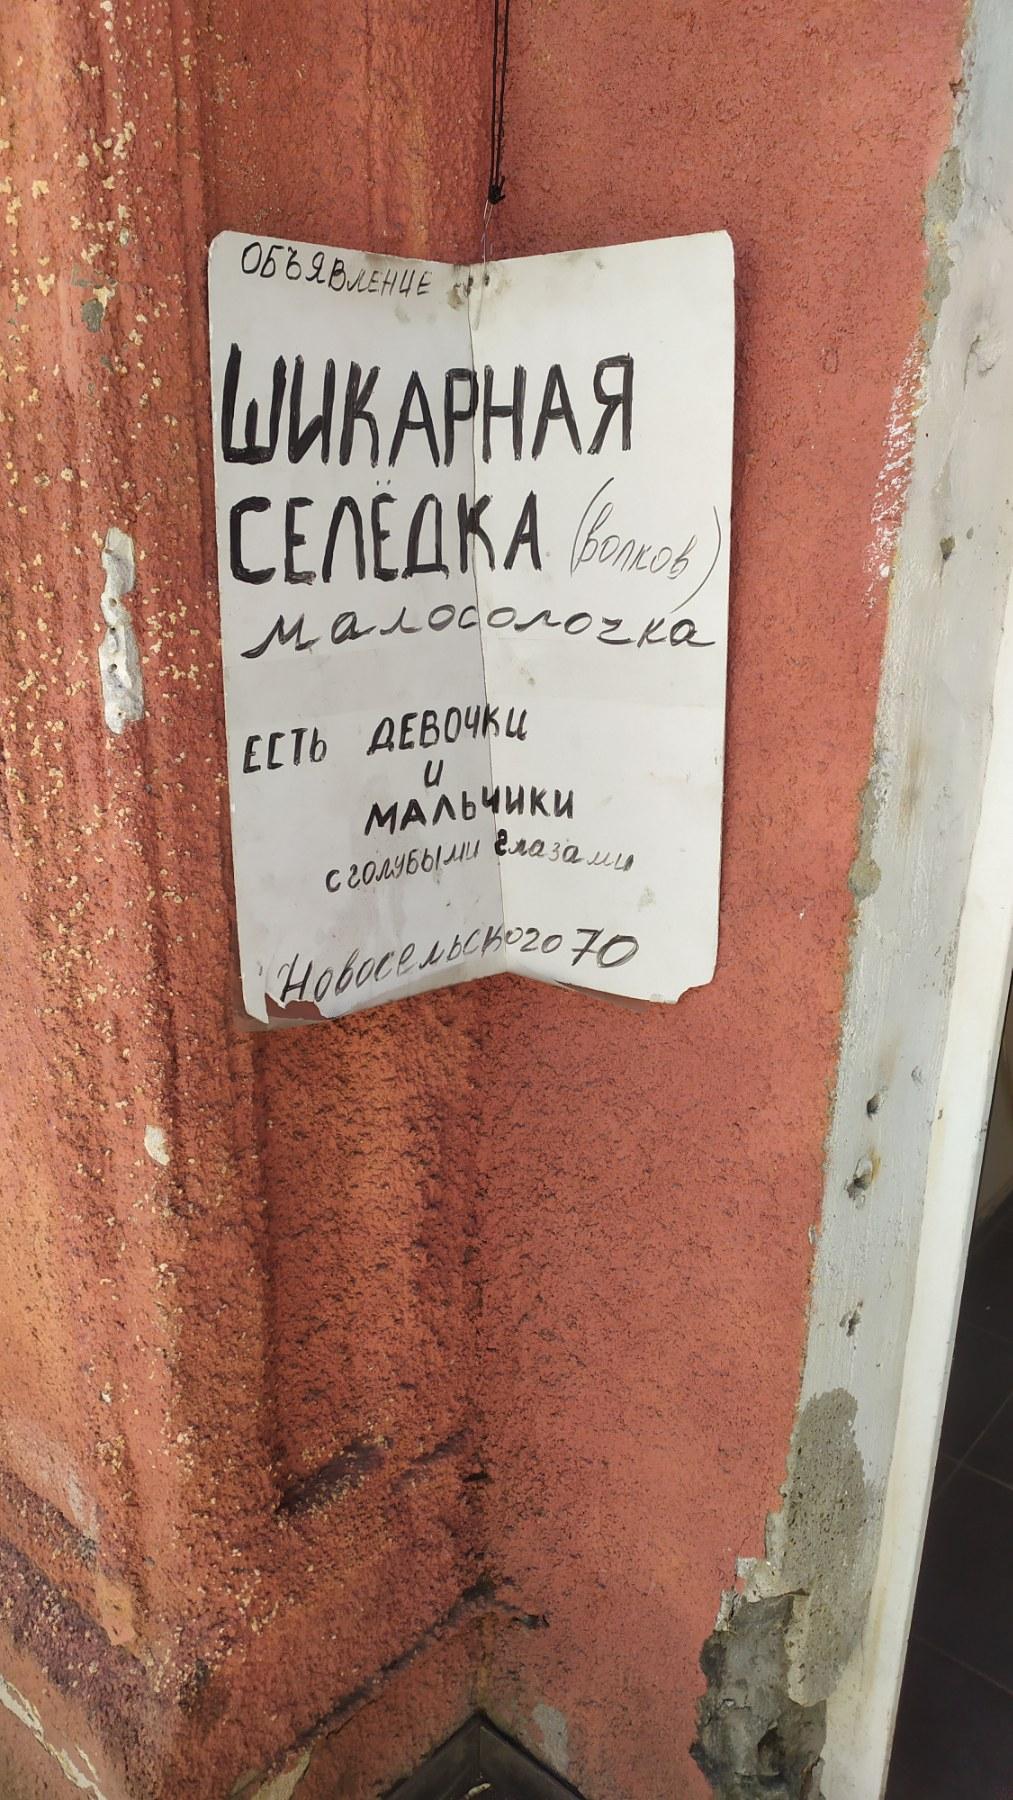 ОБЪЯВЛЕНИЕ
ШИКАРНАЯ
СЕЛЁДКА (волков)
малосолочка
ЕСТЬ ДЕВОЧКИ
И
МАЛЬЧИКИ
С ГОЛУБЫМИ глазами
Новосельского 70